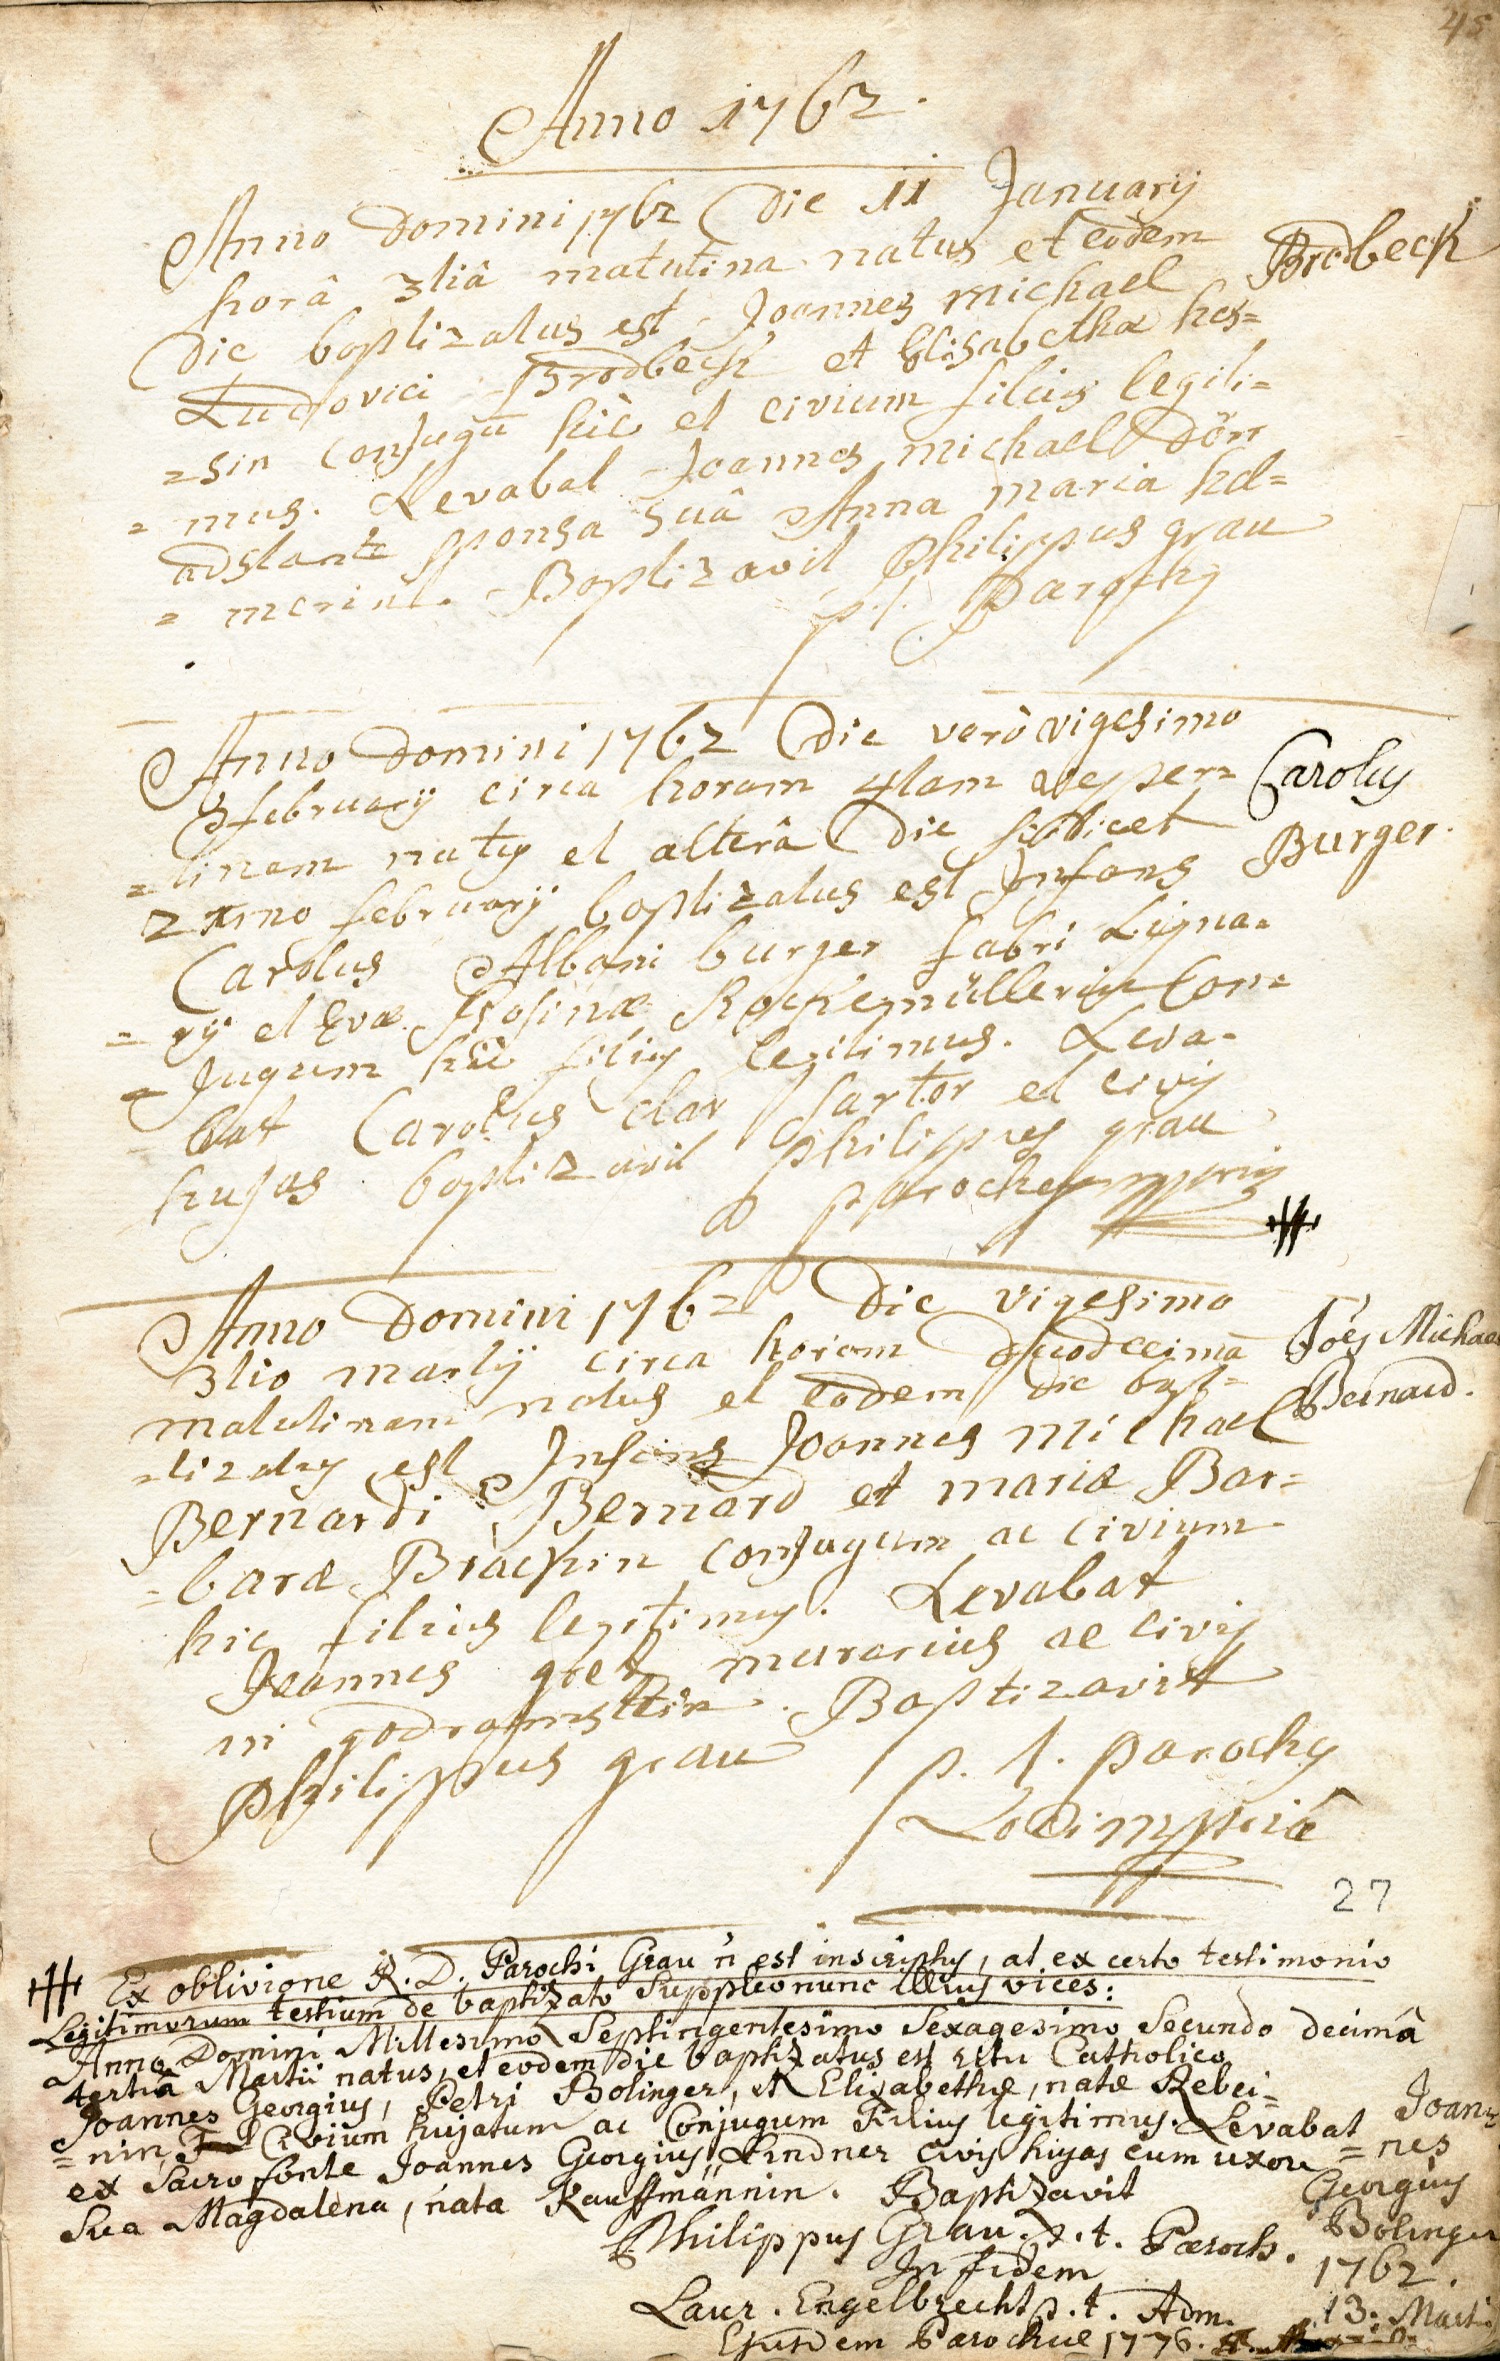 45
Anno 1762.
Anno Domini 1762 Die 11 January
horâ 3tiâ matutina natus et eodem
Brodbeck
Die baptizatus est Joannes Michael
Ludovici Brodbeck et Elisabethæ hes=
=sin Conjugū hic et civium filius legiti=
=mus. Levabat Joannes Michael Dörr
adstante sponsa suâ Anna Maria hel=
=merin. Baptizavit Philippus grau
p.t. Parochus
Anno Domini 1762 Die verò vigesimo
february circa horam 4tam vesper=
Carolus
=tinam natus et alterâ Die scilicet
Burger.
21mo february baptizatus est Infans
Carolus Albani burger fabri Ligna=
=rij et Evæ Rosinæ Con=
=jugum hic filius legitimus. Leva=
bat Carolus clar sartor et civis
hujas baptizavit Philippus grau
parochus
Anno Domini 1762 Die vigesimo
3tio martij circa horam duodecimā
Joēs Michael
matutinam natus et eodem die bapt=
Bernard.
=tizatus est Infans Joannes Michael
Bernardi Bernard et mariæ Bar=
=baræ Brackin conjugum ac civium
hic filius legitimus. Levabat
Joannes murarius ac civis
in godramstein. Baptizavit
Philippus grau p. t. parochus
27
Ex oblivione R. D. Parochi Grau ñ est inscriptus, at ex certo testimonio
Legitimorum testium de baptizato Suppleo nunc illius vices:
Anno Domini Millesimo Septingentesimo Sexagesimo Secundo decimâ
tertiâ Martii natus, et eodem die baptizatus est ritu Catholico
Joannes Georgius, Petri Bolinger, & Elisabethæ, natæ Rebei=
Joan=
=nin Civium hujatum ac Conjugum Filius legitimus. Levabat
=nes
ex Sacro fonte Joannes Georgius Lindner civis hujas cum uxore
Georgius
Sua Magdalena, nata Kauffmännin. Baptizavit
Bolinger
Philippus Grau p. t. Paroch.
1762.
In fidem
13. Martii
Laur. Engelbrecht p. t. Adm.
Ejusdem Parochiæ 1776.